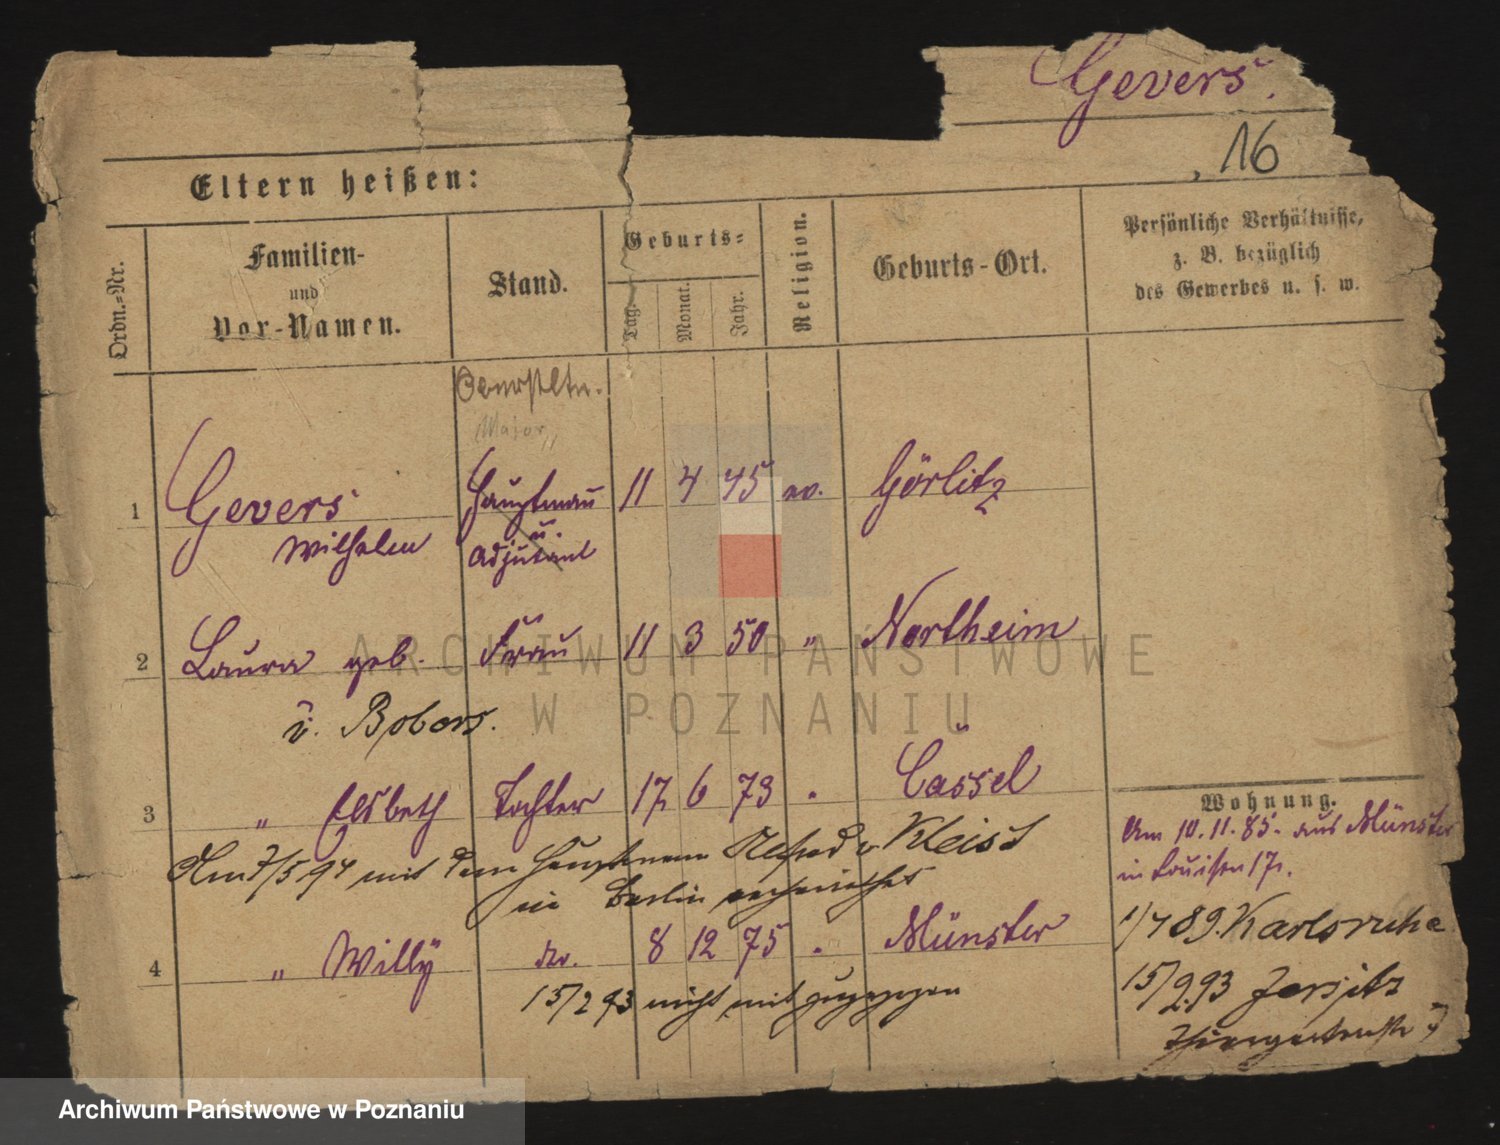 Gevers.
16
Eltern heißen:
Ordn.-Nr.
Familien-
und
Vor-Namen.
Stand.
Geburts-
Tag.
Monat.
Jahr.
Religion.
Geburts-Ort.
Persönliche Verhältnisse,
z. B. bezüglich
des Gewerbes u. s. w.
Oberstltn.
Major
1 Gevers Hauptmann 11 4 45 ev. Görlitz
Wilhelm u. Adjutant
2 Laura geb. Frau 11 3 50 " Northeim
v. Bobers.
3 " Elsbeth Tochter 17 6 73 " Cassel
Am 7/5 94 mit dem Hauptmann Alfred v Kleist
in Berlin verheirathet
4 " Willy 8 12 75 " Münster
15/2 93 nicht mit zugezogen
Wohnung.
Am 10.11.85. aus Münster
in Louisen 17.
1/4 89. Karlsruhe
15/2.93 Jersitz
ARCHIWUM PAŃSTWOWE
W POZNANIU
Archiwum Państwowe w Poznaniu